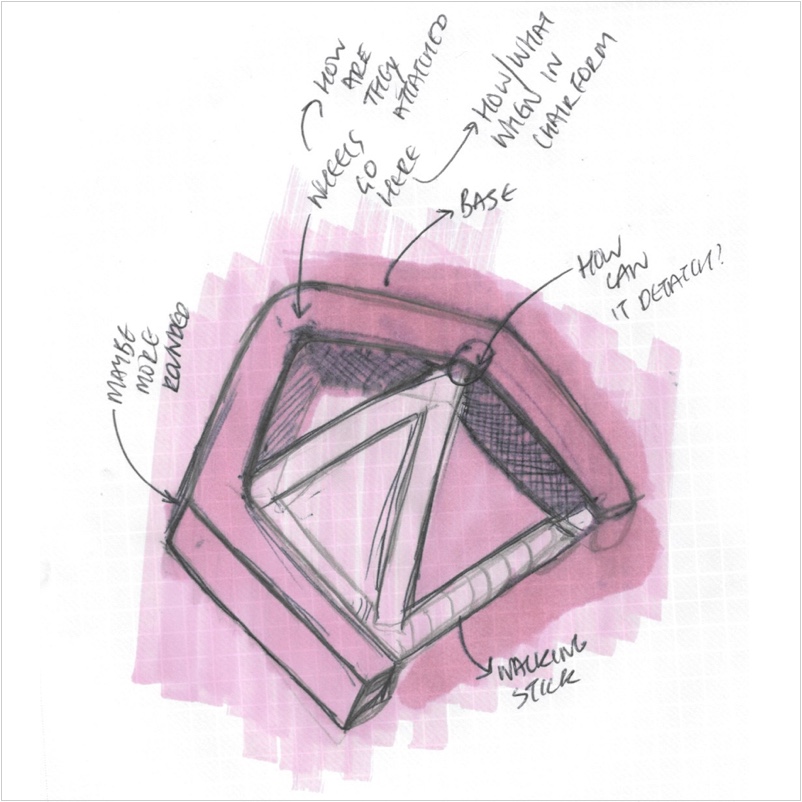 HOW
ARE
THEY
ATTATCHED
HOW/WHAT
WHEN IN
CHAIR FORM
WHEELS
GO
HERE
BASE
HOW
CAN
IT DETATCH?
MAYBE
MORE
ROUNDED
WALKING
STICK